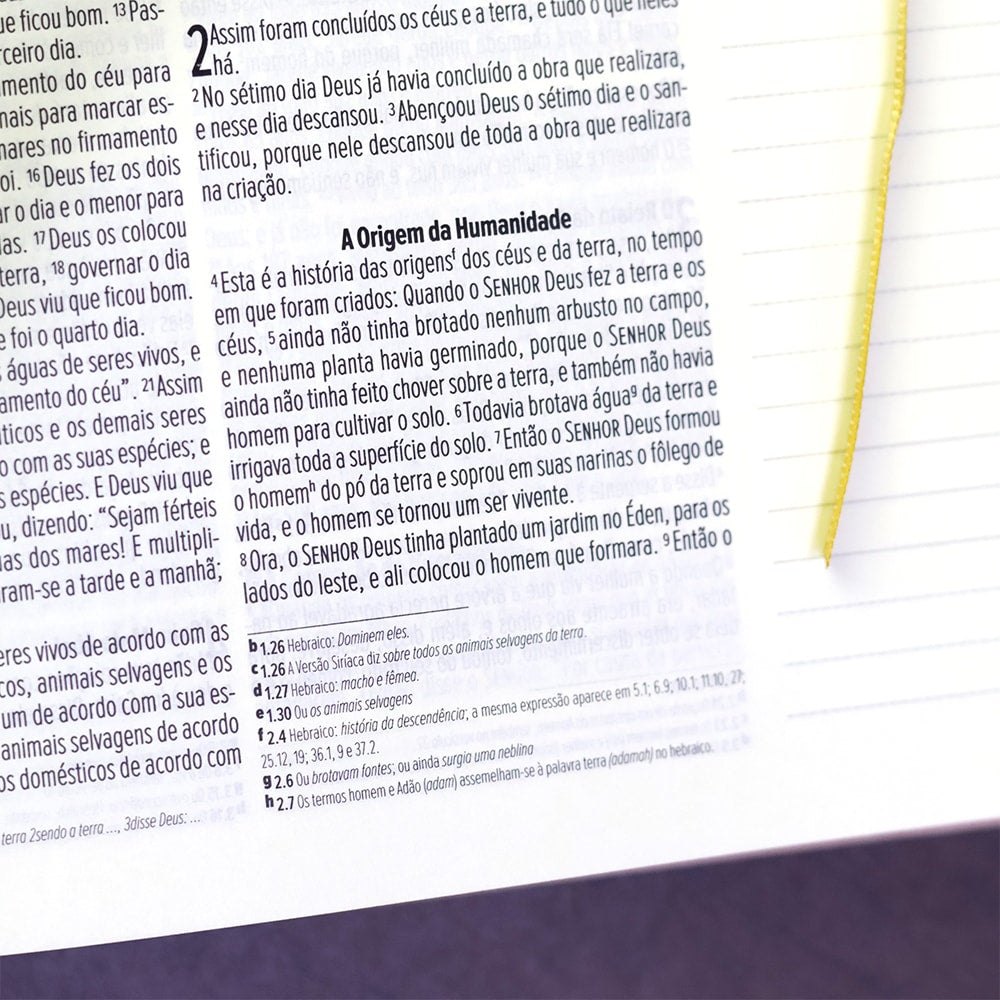 ue ficou bom. 13 Pas-
rceiro dia.
mento do céu para
nais para marcar es-
nares no firmamento
oi. 16 Deus fez os dois
ar o dia e o menor para
las. 17 Deus os colocou
terra, 18 governar o dia
Deus viu que ficou bom.
e foi o quarto dia.
águas de seres vivos, e
amento do céu”. 21 Assim
ticos e os demais seres
o com as suas espécies; e
s espécies. E Deus viu que
ou, dizendo: “Sejam férteis
uas dos mares! E multipli-
ram-se a tarde e a manhã;
eres vivos de acordo com as
cos, animais selvagens e os
um de acordo com a sua es-
animais selvagens de acordo
os domésticos de acordo com
terra 2sendo a terra ..., 3disse Deus: ...
2 Assim foram concluídos os céus e a terra, e tudo o que neles
há.
2 No sétimo dia Deus já havia concluído a obra que realizara,
e nesse dia descansou. 3 Abençoou Deus o sétimo dia e o san-
tificou, porque nele descansou de toda a obra que realizara
na criação.
A Origem da Humanidade
4 Esta é a história das origens f dos céus e da terra, no tempo
em que foram criados: Quando o SENHOR Deus fez a terra e os
céus, 5 ainda não tinha brotado nenhum arbusto no campo,
e nenhuma planta havia germinado, porque o SENHOR Deus
ainda não tinha feito chover sobre a terra, e também não havia
homem para cultivar o solo. 6 Todavia brotava água g da terra e
irrigava toda a superfície do solo. 7 Então o SENHOR Deus formou
o homem h do pó da terra e soprou em suas narinas o fôlego de
vida, e o homem se tornou um ser vivente.
8 Ora, o SENHOR Deus tinha plantado um jardim no Éden, para os
lados do leste, e ali colocou o homem que formara. 9 Então o
b 1.26 Hebraico: Dominem eles.
c 1.26 A Versão Siríaca diz sobre todos os animais selvagens da terra.
d 1.27 Hebraico: macho e fêmea.
e 1.30 Ou os animais selvagens
f 2.4 Hebraico: história da descendência; a mesma expressão aparece em 5.1; 6.9; 10.1; 11.10, 27;
25.12, 19; 36.1, 9 e 37.2.
g 2.6 Ou brotavam fontes; ou ainda surgia uma neblina
h 2.7 Os termos homem e Adão (adam) assemelham-se à palavra terra (adamah) no hebraico.